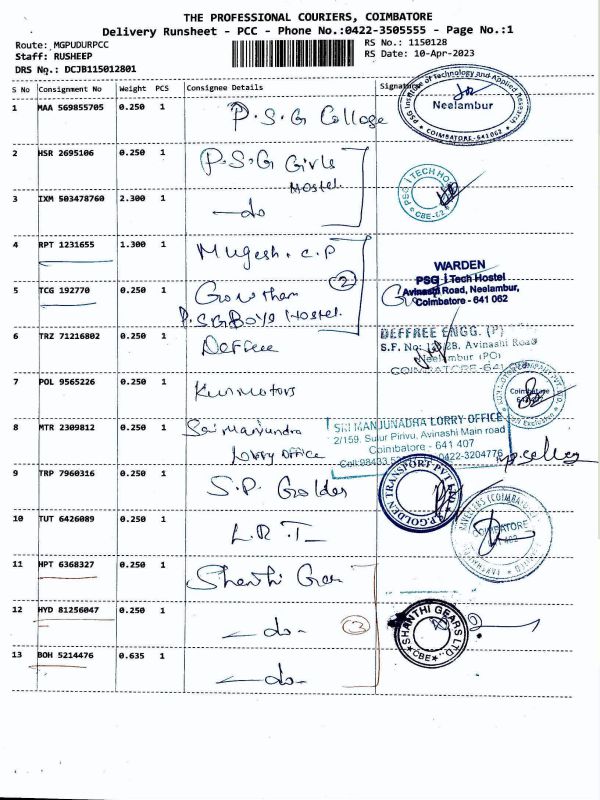 THE PROFESSIONAL COURIERS, COIMBATORE
Delivery Runsheet - PCC - Phone No.:0422-3505555 - Page No.:1
Route: MGPUDURPCC
RS No.: 1150128
Staff: RUSHEEP
RS Date: 10-Apr-2023
DRS No.: DCJB115012801
S No Consignment No Weight PCS Consignee Details Signature
1 MAA 569855705 0.250 1 P.S.G College
PSG Institute of Technology and Applied Research
Neelambur
COIMBATORE-641062
2 HSR 2695106 0.250 1 P.S.G Girls
Hostel
PSG iTECH HOSTEL
CBE-62
3 IXM 503478760 2.300 1 -do
4 RPT 1231655 1.300 1 Mugesh. C.P
WARDEN
PSG iTech Hostel
Avinashi Road, Neelambur,
Coimbatore - 641 062
5 TCG 192770 0.250 1 Gowtham 2
P.S.G Boys Hostel
6 TRZ 71216802 0.250 1 Deffree
DEFFREE ENGG. (P)
S.F. No: 128, Avinashi Road
Neelambur (PO)
COIMBATORE-641
7 POL 9565226 0.250 1 Kun Motors
Coimbatore
8 MTR 2309812 0.250 1 Sri Manjundra
Lorry Office
SRI MANJUNADRA LORRY OFFICE
2/159, Sulur Pirivu, Avinashi Main road
Coimbatore - 641 407
0422-3204776
9 TRP 7960316 0.250 1 S.P. Golden
S.P.GOLDEN TRANSPORT PVT LTD
10 TUT 6426089 0.250 1 L.R.T
COIMBATORE
11 HPT 6368327 0.250 1 Shanthi Gear
12 HYD 81256047 0.250 1 -do- 3
SHANTHI GEARS LTD
CBE
13 BOH 5214476 0.635 1 -do-